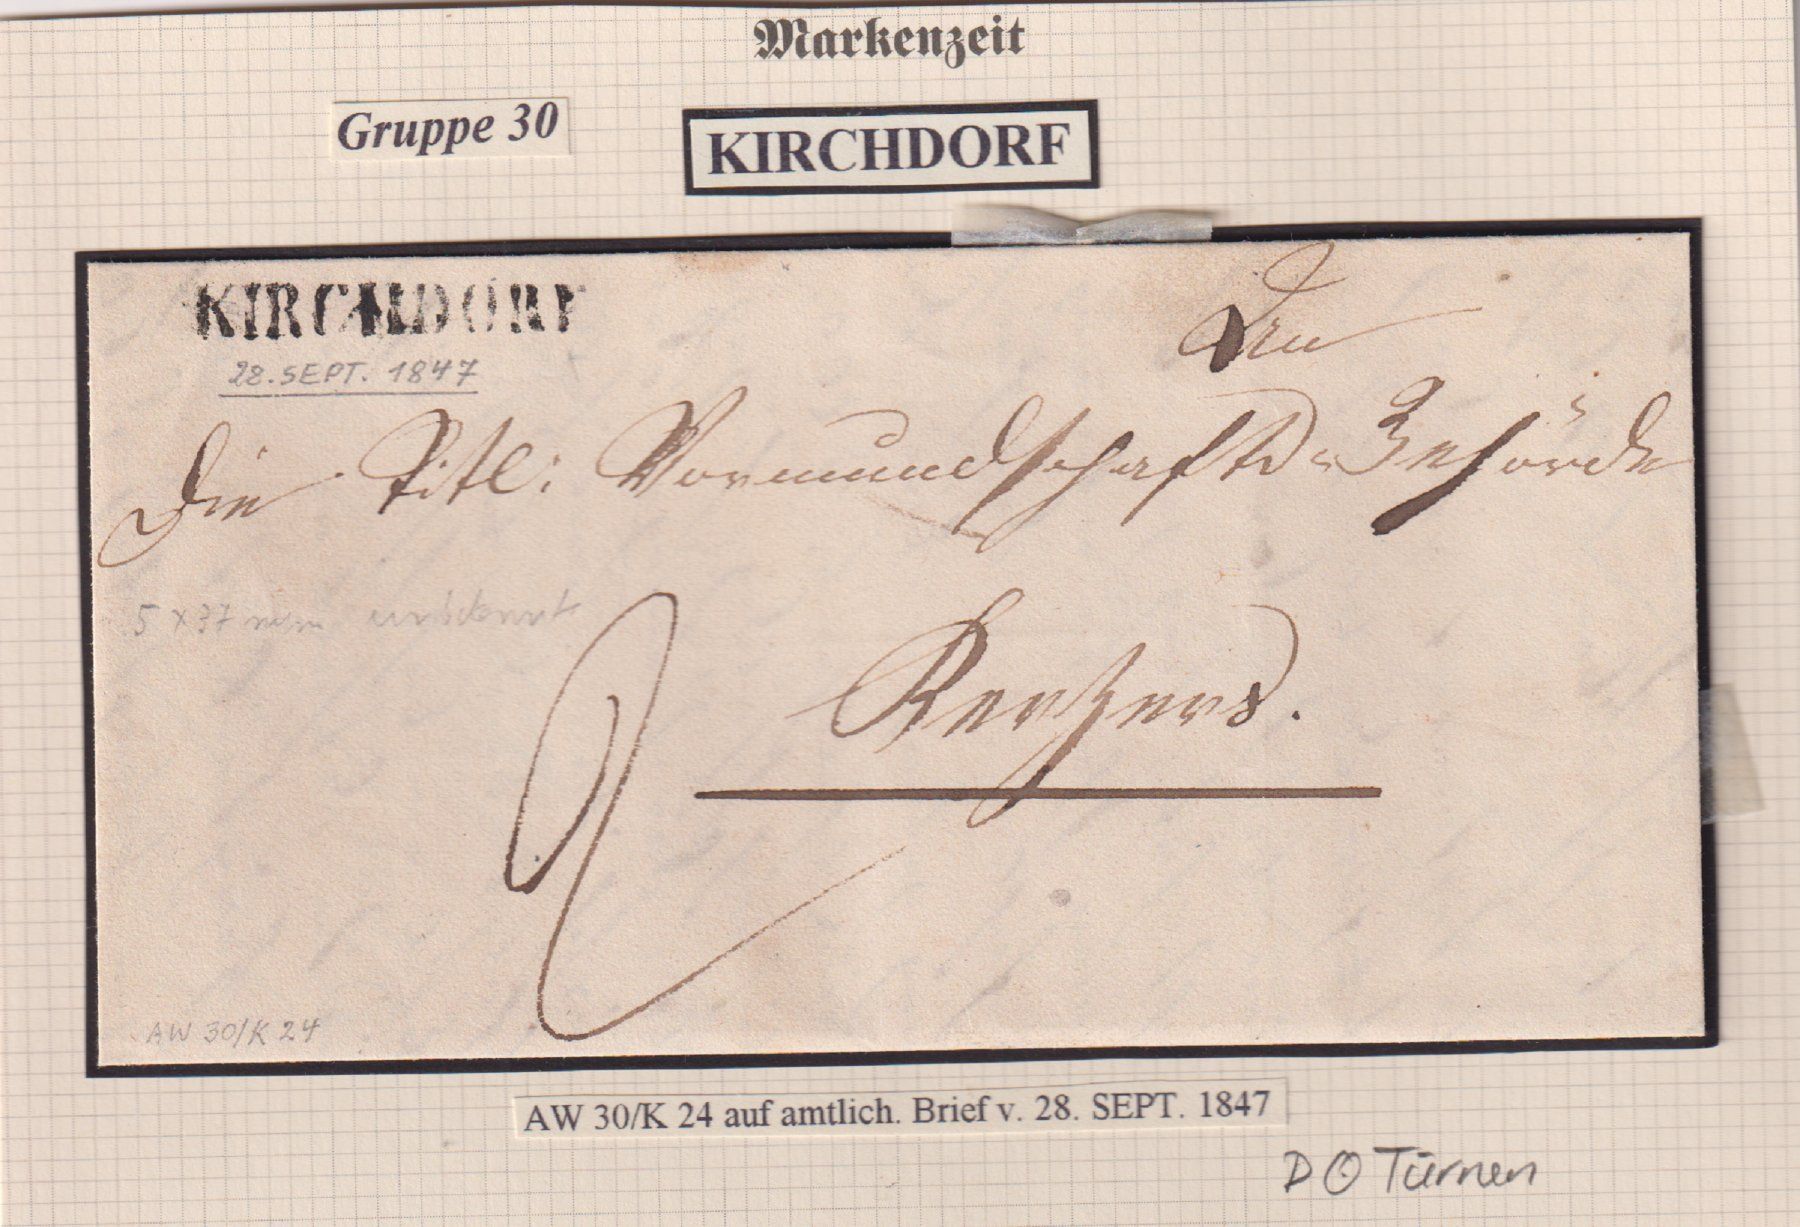 Markenzeit
Gruppe 30
KIRCHDORF
KIRCHDORF
28. SEPT. 1847
An
Die Titl: Vormundschafts-Behörde
5 x 37 mm unbekannt
Kerzers.
2
AW 30/K 24
AW 30/K 24 auf amtlich. Brief v. 28. SEPT. 1847
Türnen